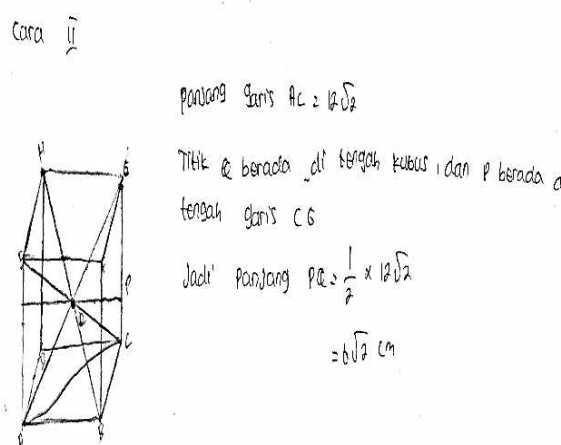 Cara II
Panjang garis AC = 12√2
Titik Q berada di tengah kubus, dan P berada d
tengah garis CG
Jadi Panjang PQ = 1/2 × 12√2
= 6√2 cm
H
P
Q
C